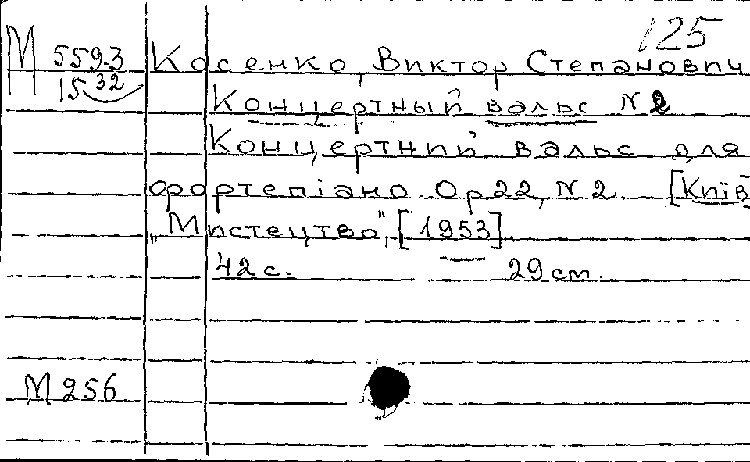 125
М 559-3 Косенко, Виктор Степанович
15 32 Концертный вальс N 2
Концертний вальс для
фортепіано. Ор 22, N 2 [Київ]
"Мистецтво", [1953]
42 с. 29 см.
М 256